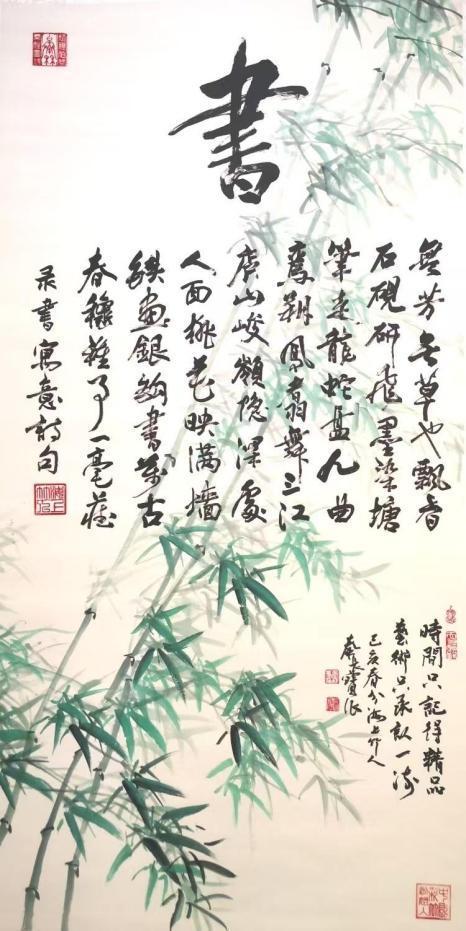 書
無芳無草也飄香
石硯研飛墨染塘
筆走龍蛇盤九曲
鸞翔鳳翥舞三江
廬山峻嶺隐深處
人面桃花映满墻
鐵畫銀鈎書萬古
春穐雅事一毫藏
录書寓意詩句
時間只記得精品
藝術只承認一流
己亥春分海上竹人